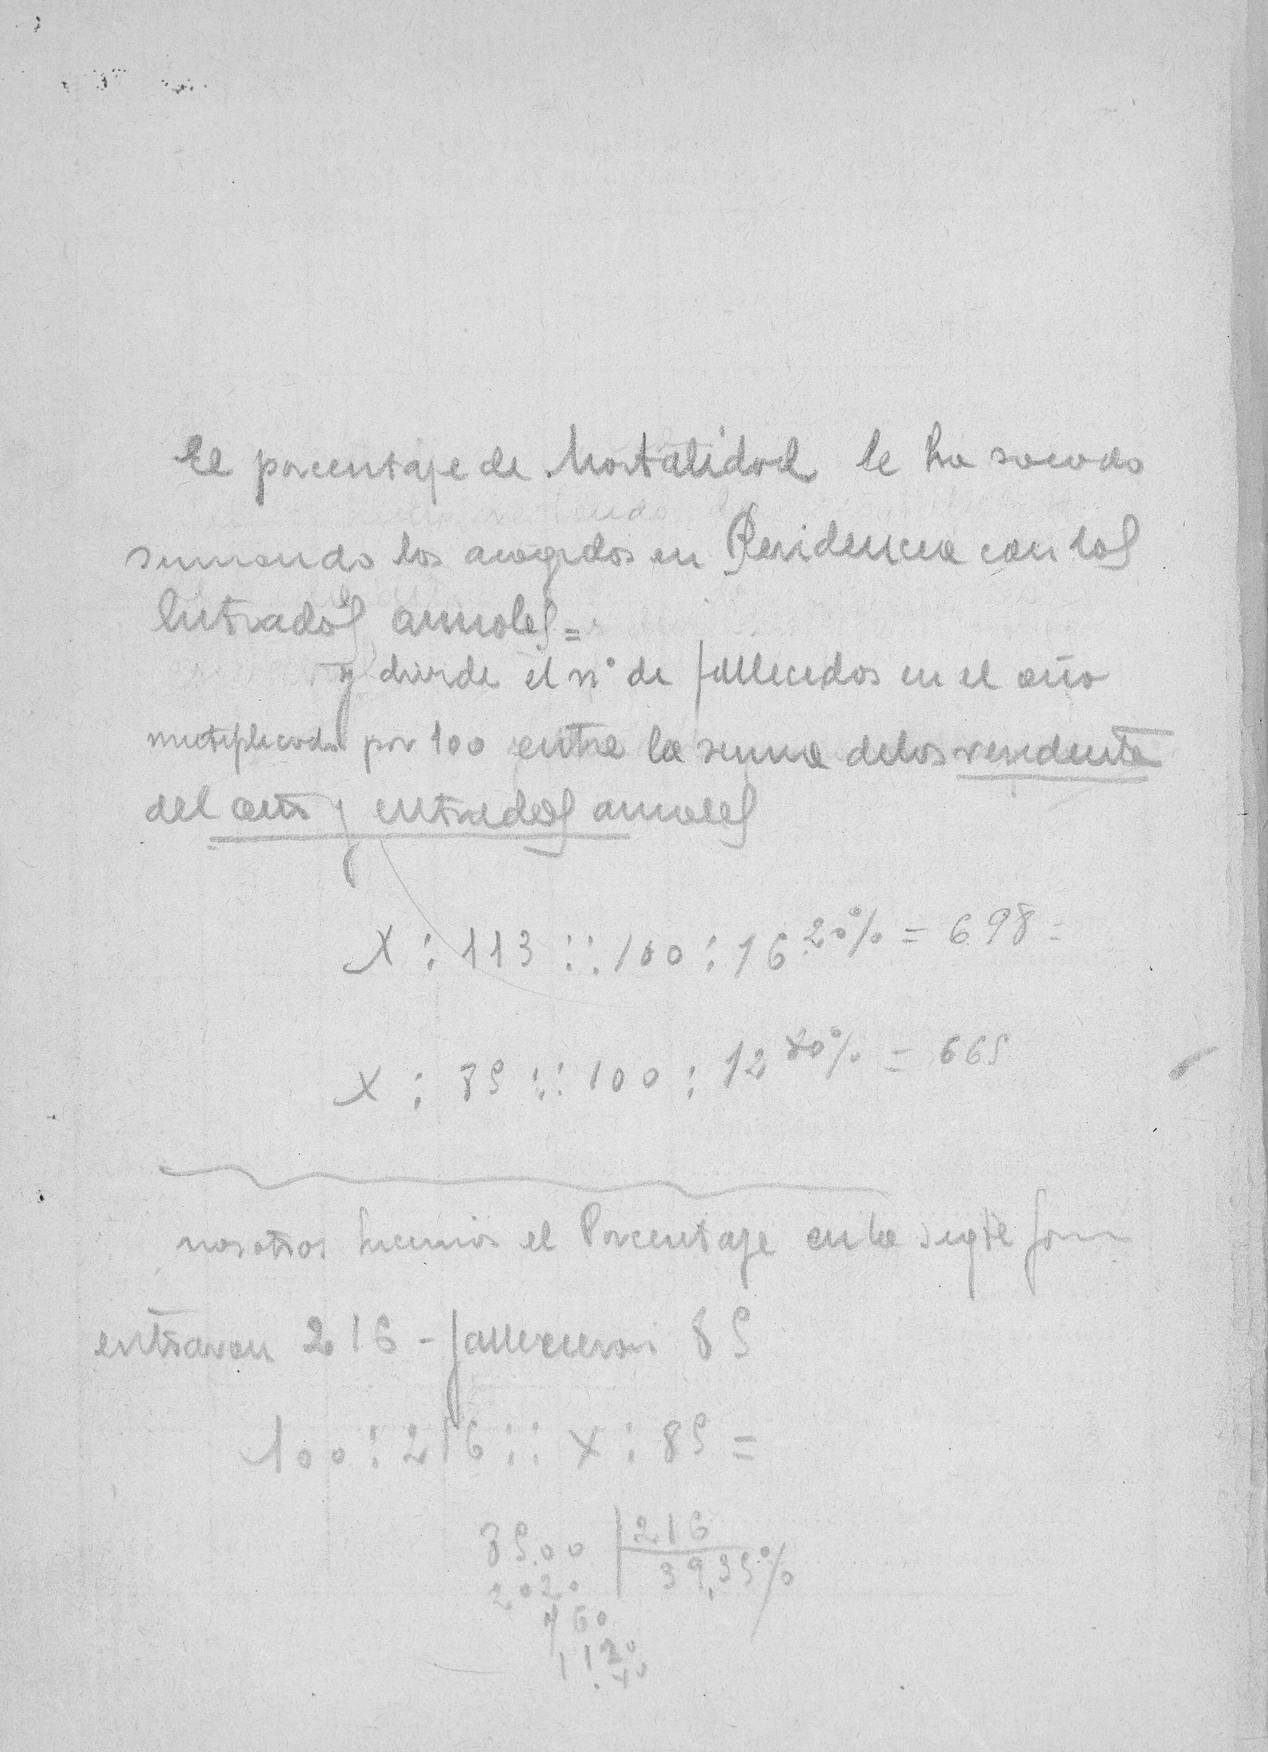 El porcentaje de Mortalidad le ha sacado
sumando los acogidos en Residencia con los
Entrados anuales =
y divide el nº de fallecidos en el año
multiplicado por 100 entre la suma de los residente
del año y entrados anuales
X : 113 :: 100 : 16 20% = 698 =
X : 85 :: 100 : 12 80% = 665
nosotros hacemos el Porcentaje en la sigte form
entraron 216 - fallecieron 85
100 : 216 :: X : 85 =
85.00 | 216
2020 39,35%
760
1120
40